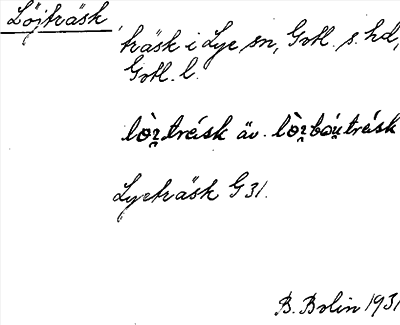 Löjträsk
träsk i Lye sn, Gotl. s. hd,
Gotl. l.
lò̀i̯träsk äv. lò̀i̯bóu̯träsk
Lyeträsk G 31.
B. Bolin 1931